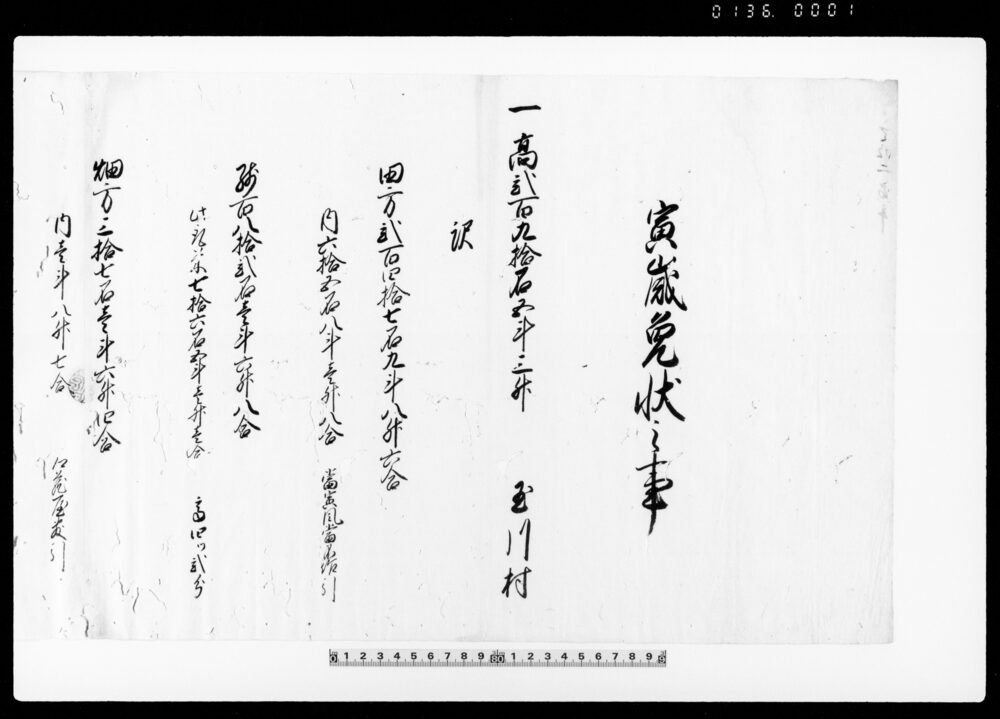 0136 0001
寅歳免状之事
一高弐百九拾石五斗三升 玉川村
訳
田方弐百四拾七石九斗八升六合
内六拾五石八斗壱升八合 當寅風當 引
残百八拾弐石壱斗六升八合
此取米七拾六石五斗壱升壱合 高四ツ弐分
畑方三拾七石壱斗六升四合
内壱斗八升七合 蔵屋敷引
0 1 2 3 4 5 6 7 8 9 1 2 3 4 5 6 7 8 9